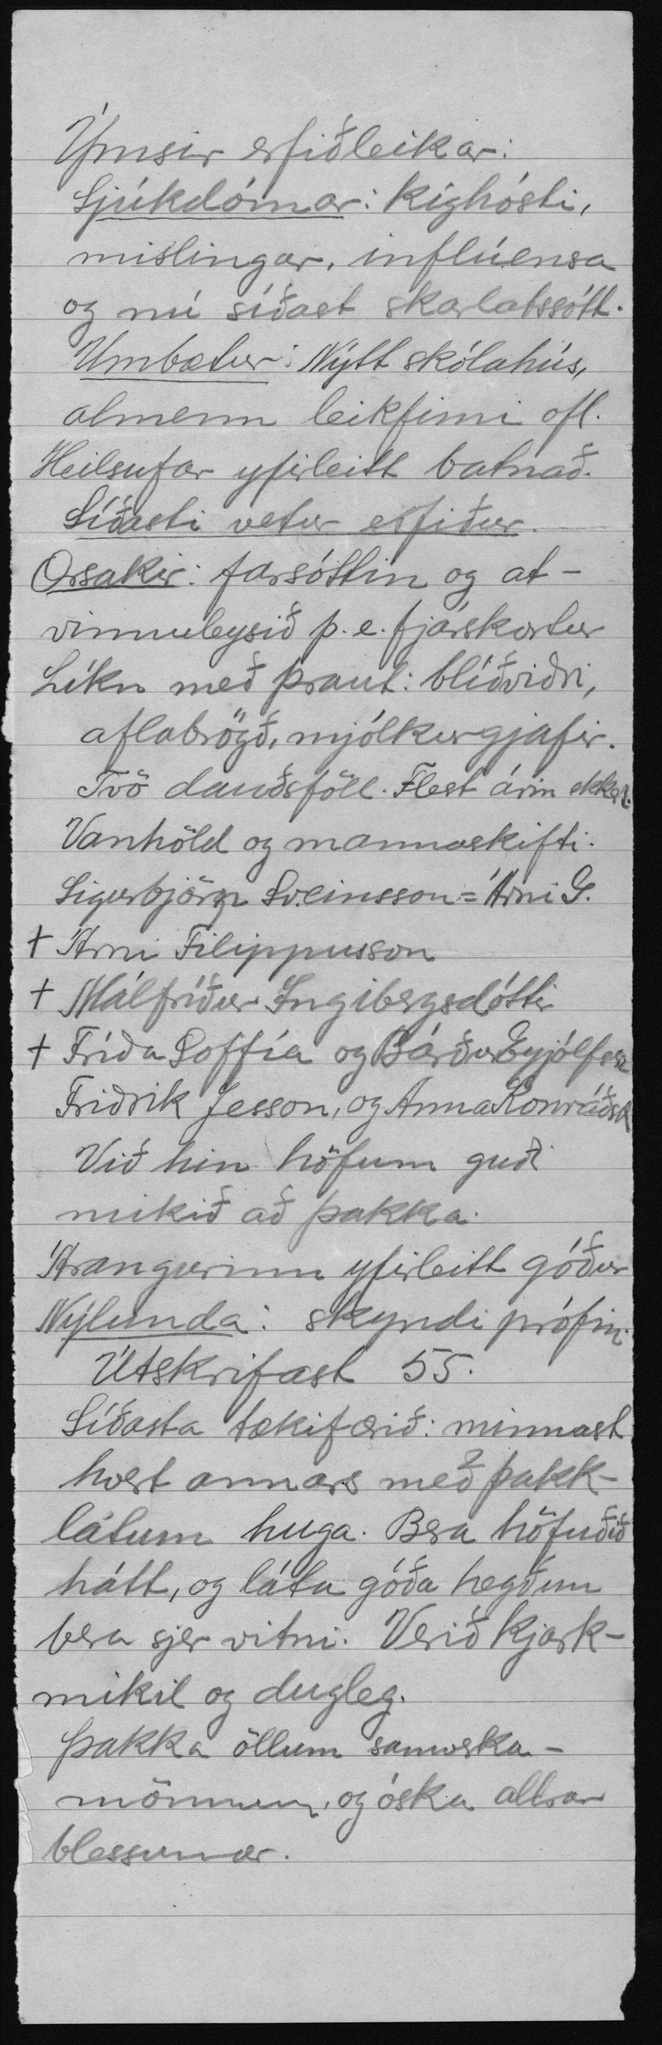 Ýmsir erfiðleikar:
Sjúkdómar: kíghósti,
mislingar, inflúensa
og nú síðast skarlatssótt.
Umbætur: Nýtt skólahús,
almenn leikfimi ofl.
Heilsufar yfirleitt batnað.
Síðasti vetur erfiður.
Orsakir: farsóttin og at-
vinnuleysið þ.e. fjárskortur
Líkn með þraut: blíðviðri,
aflabrögð, mjólkurgjafir.
Tvö dauðsföll. Flest árin ekkert.
Vanhöld og mannaskifti.
Sigurbjörn Sveinsson = Árni G.
† Árni Filippusson
† Málfríður Ingibergsdóttir
† Fríða Soffía og Bárður Eyjólfsson
Friðrik Jesson, og Anna Konráðsd
Við hin höfum guði
mikið að þakka.
Árangurinn yfirleitt góður
Nýlunda: skyndi prófin.
Útskrifast 55.
Síðasta tækifærið: minnast
hvert annars með þakk-
látum huga. Bera höfuðið
hátt, og láta góða hegðun
bera sjer vitni. Verið kjark-
mikil og dugleg.
Þakka öllum samverka-
mönnum, og óska allrar
blessunar.